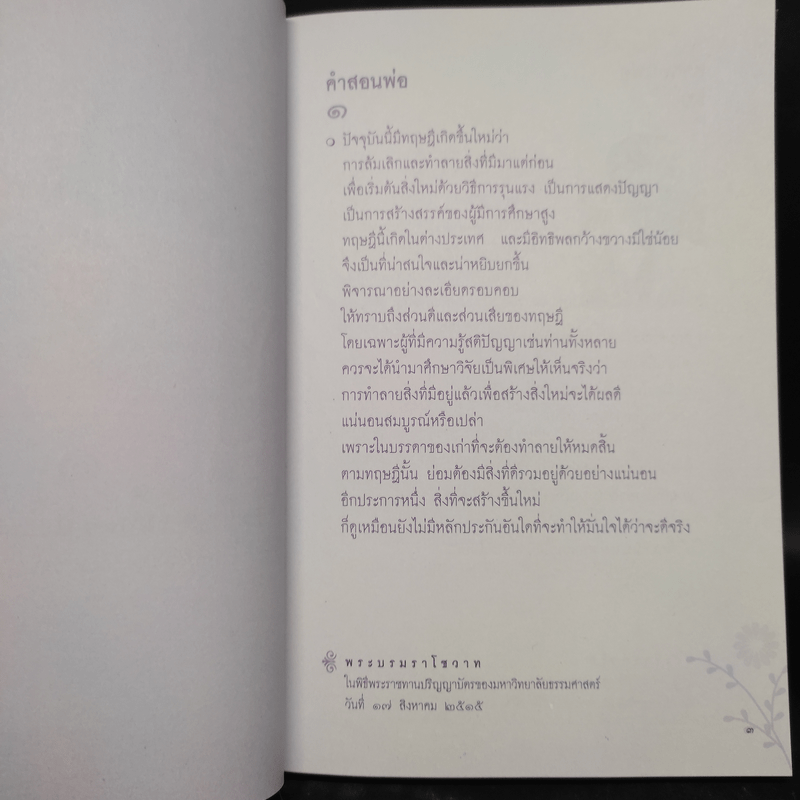 คำสอนพ่อ
๑
๐ ปัจจุบันนี้มีทฤษฎีเกิดขึ้นใหม่ว่า
การล้มเลิกและทำลายสิ่งที่มีมาแต่ก่อน
เพื่อเริ่มต้นสิ่งใหม่ด้วยวิธีการรุนแรง เป็นการแสดงปัญญา
เป็นการสร้างสรรค์ของผู้มีการศึกษาสูง
ทฤษฎีนี้เกิดในต่างประเทศ และมีอิทธิพลกว้างขวางมิใช่น้อย
จึงเป็นที่น่าสนใจและน่าหยิบยกขึ้น
พิจารณาอย่างละเอียดรอบคอบ
ให้ทราบถึงส่วนดีและส่วนเสียของทฤษฎี
โดยเฉพาะผู้ที่มีความรู้สติปัญญาเช่นท่านทั้งหลาย
ควรจะได้นำมาศึกษาวิจัยเป็นพิเศษให้เห็นจริงว่า
การทำลายสิ่งที่มีอยู่แล้วเพื่อสร้างสิ่งใหม่จะได้ผลดี
แน่นอนสมบูรณ์หรือเปล่า
เพราะในบรรดาของเก่าที่จะต้องทำลายให้หมดสิ้น
ตามทฤษฎีนั้น ย่อมต้องมีสิ่งที่ดีรวมอยู่ด้วยอย่างแน่นอน
อีกประการหนึ่ง สิ่งที่จะสร้างขึ้นใหม่
ก็ดูเหมือนยังไม่มีหลักประกันอันใดที่จะทำให้มั่นใจได้ว่าจะดีจริง
พระบรมราโชวาท
ในพิธีพระราชทานปริญญาบัตรของมหาวิทยาลัยธรรมศาสตร์
วันที่ ๑๗ สิงหาคม ๒๕๑๕